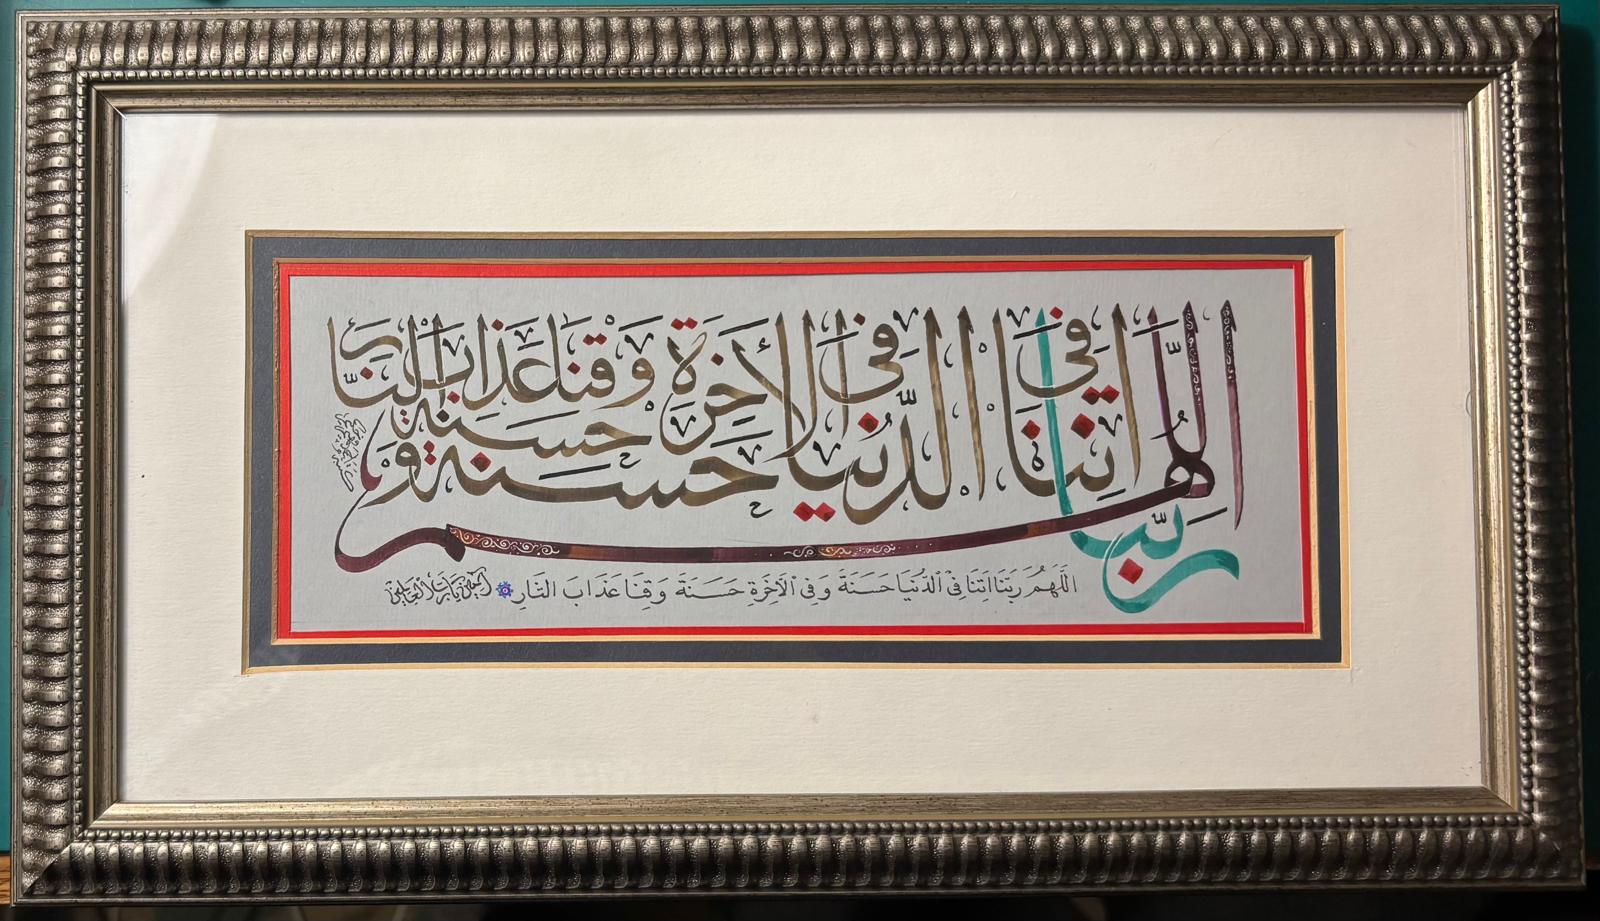 اللهم ربنا اتنا في الدنيا حسنة وفي الأخرة حسنة وقنا عذاب النار
اللَّهُمَّ رَبَّنَا اتِنَا فِي الدُّنْيَا حَسَنَةً وَفِي الْآخِرَةِ حَسَنَةً وَقِنَا عَذَابَ النَّارِ امين يا رب العالمين